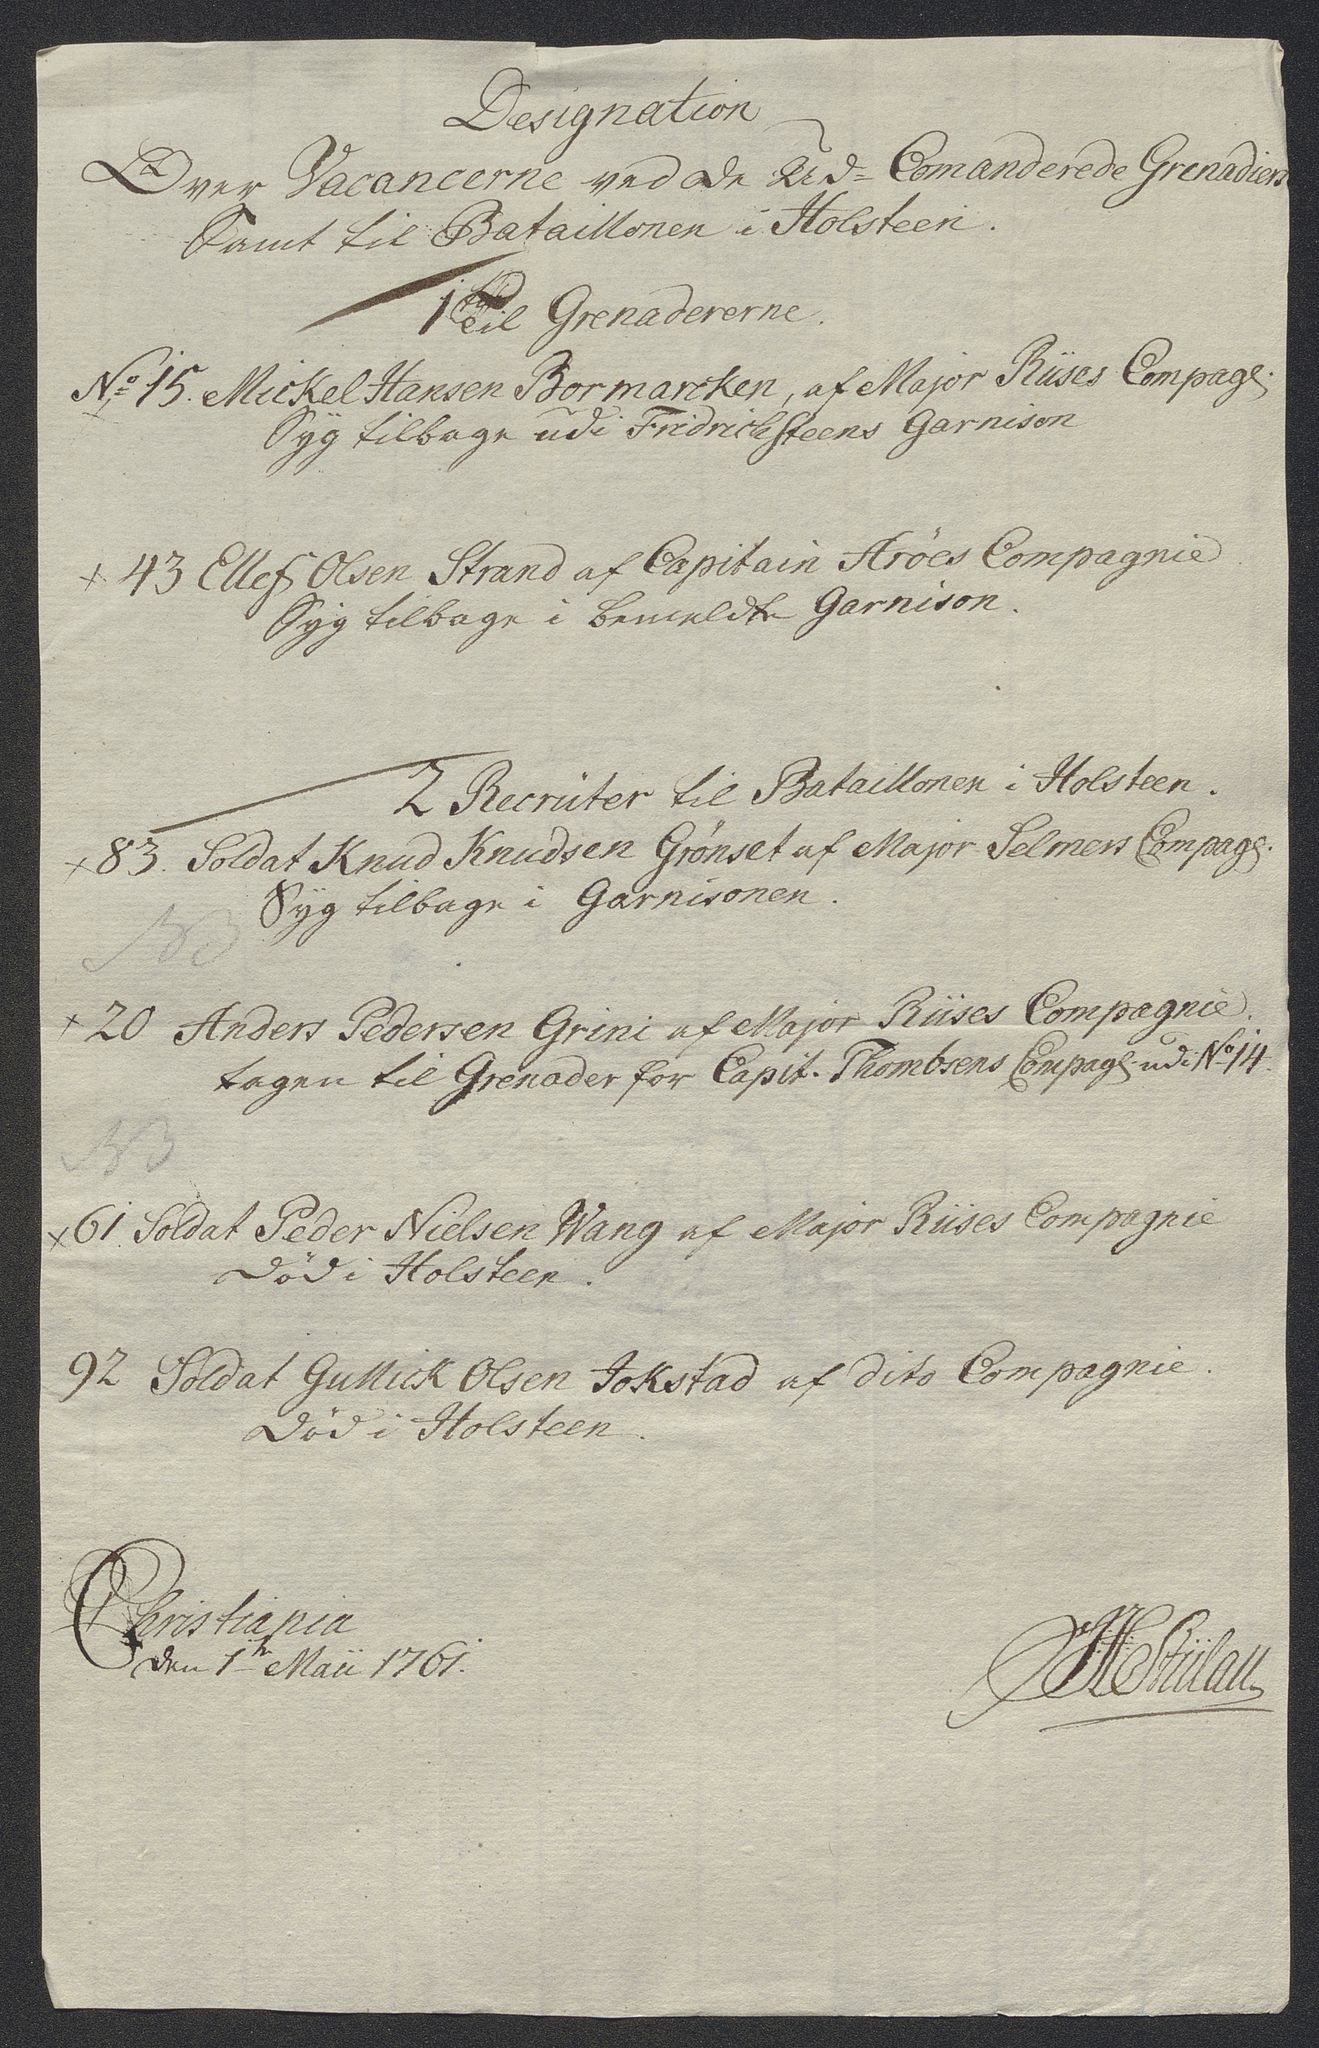 Designation
Over Vacancerne ved de Ud= Comanderede Grenadiers
Samt til Bataillonen i Holsteen.
1 til Grenadererne.
No 15. Mickel Hansen Bormarcken, af Major Rüses Compagl.
Syg tilbage udi Fridrichsteens Garnison
x 43 Ellef Olsen Strand af Capitain Arøes Compagnie
Syg tilbage i bemeldte Garnison.
2 Recrüter til Bataillonen i Holsteen.
x 83. Soldat Knud Knudsen Grønset af Major Selmers Compagl.
Syg tilbage i Garnisonen.
NB
x 20 Anders Pedersen Grini af Major Rüses Compagnie.
tagen til Grenader for Capit. Thombsens Compagl. udi No 14.
NB
x 61. Soldat Peder Nielsen Wang af Major Rüses Compagnie
Død i Holsteen.
92 Soldat Gullick Olsen Jokstad af dito Compagnie.
Død i Holsteen.
Christiania
den 1te Maii 1761.